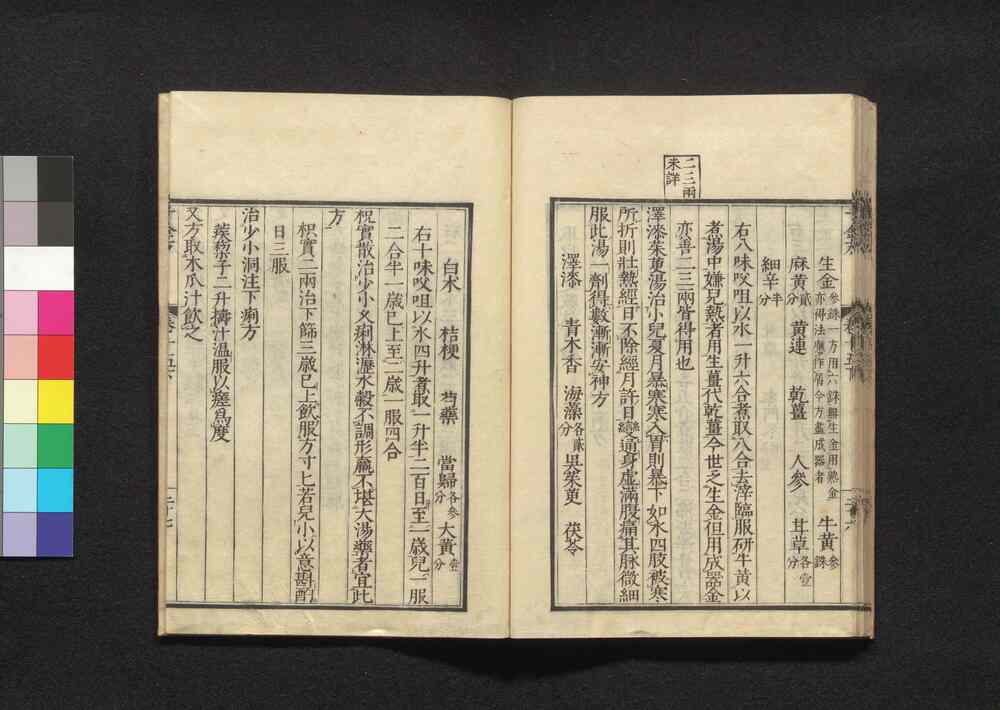 二三兩
未詳
生金參銖一方用六銖無生金用熟金亦得法應作屑今方盡成器者 牛黃參銖
麻黃貳分 黃連 乾薑 人參 甘草各壹分
細辛半分
右八味㕮咀以水一升六合煮取八合去滓臨服研牛黃以
煮湯中嫌兒熱者用生薑代乾薑今世之生金但用成器金
亦善二三兩皆得用也
澤漆茱萸湯治小兒夏月暴寒寒入胃則暴下如水四肢被寒
所折則壯熱經日不除經月許日變通身虛滿腹痛其脉微細
服此湯一劑得數漸漸安神方
澤漆 青木香 海藻各貳分 吳茱萸 茯苓
白朮 桔梗 芍藥 當歸各參分 大黃壹分
右十味㕮咀以水四升煮取一升半二百日至一歲兒一服
二合半一歲已上至二歲一服四合
枳實散治少小久痢淋瀝水穀不調形羸不堪大湯藥者宜此
方
枳實二兩治下篩三歲已上飲服方寸匕若兒小以意斟酌
日三服
治少小洞注下痢方
蒺䔧子二升擣汁溫服以瘥爲度
又方取木瓜汁飲之